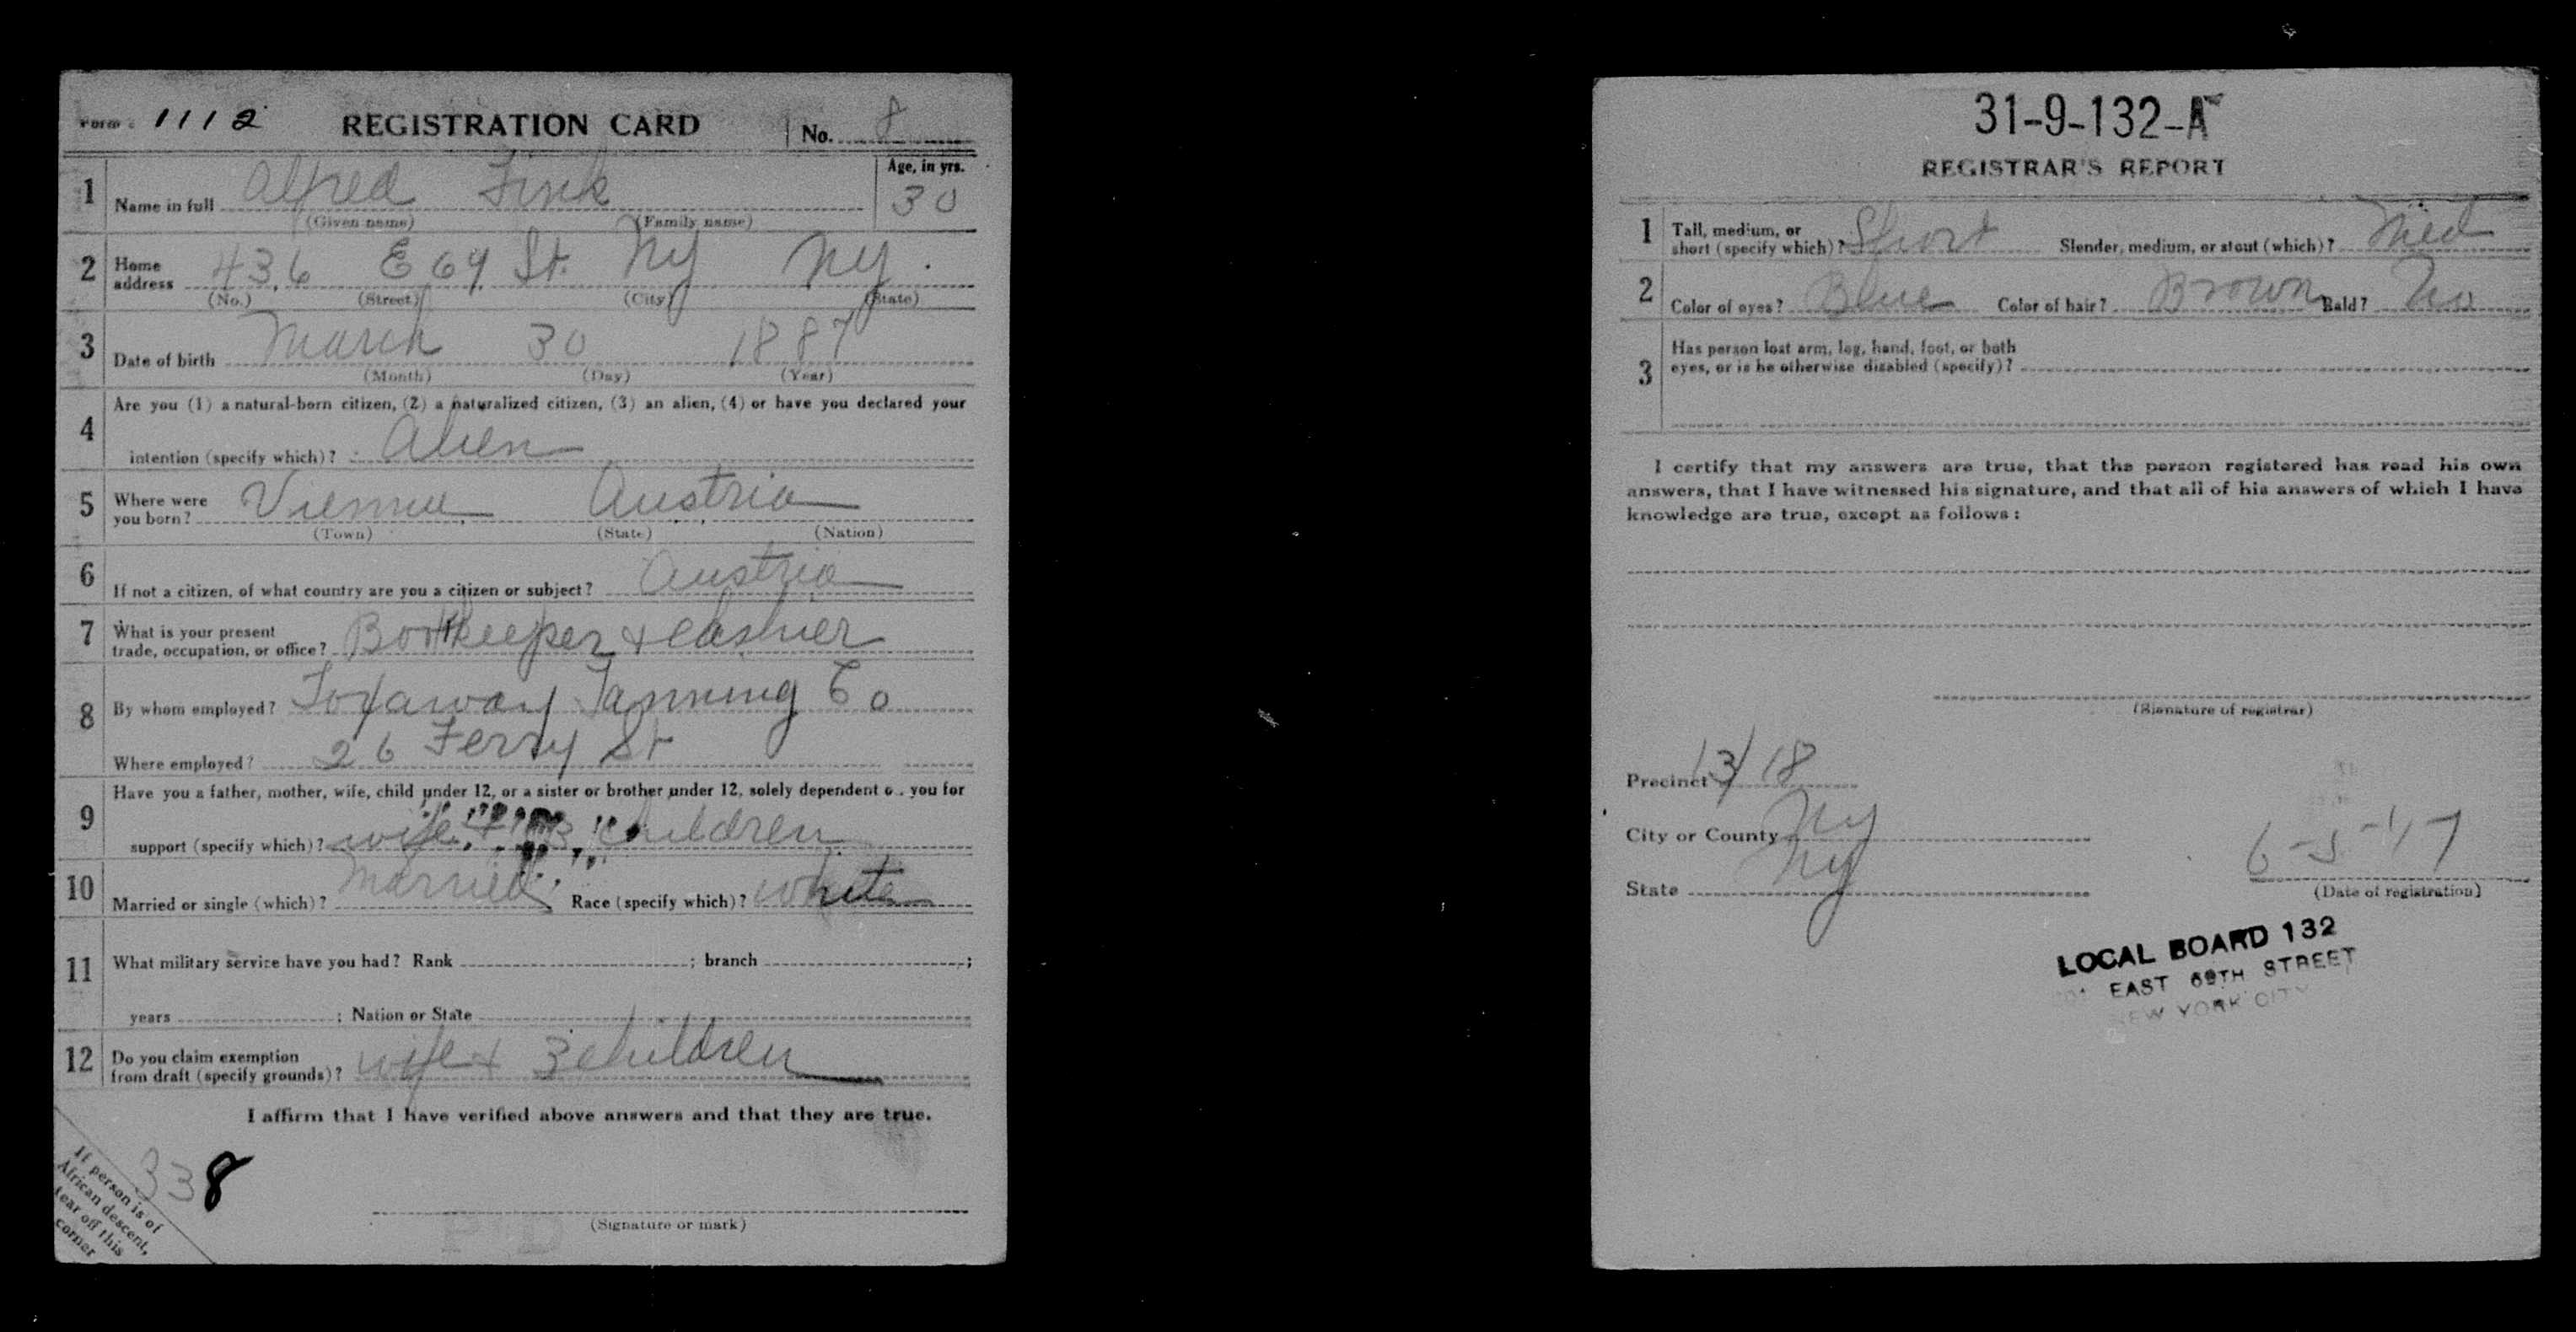 Form 1 1112 REGISTRATION CARD No. 8
1 Name in full Alfred Fink Age, in yrs. 30
(Given name) (Family name)
2 Home address 436 E 69 St. NY NY.
(No.) (Street) (City) (State)
3 Date of birth March 30 1887
(Month) (Day) (Year)
4 Are you (1) a natural-born citizen, (2) a naturalized citizen, (3) an alien, (4) or have you declared your
intention (specify which)? Alien
5 Where were you born? Vienna Austria
(Town) (State) (Nation)
6 If not a citizen, of what country are you a citizen or subject? Austria
7 What is your present trade, occupation, or office? Bookkeeper & Cashier
8 By whom employed? Toxaway Tanning Co
Where employed? 26 Ferry St
9 Have you a father, mother, wife, child under 12, or a sister or brother under 12, solely dependent o. you for
support (specify which)? wife + 3 children
10 Married or single (which)? Married Race (specify which)? White
11 What military service have you had? Rank ; branch ;
years ; Nation or State
12 Do you claim exemption from draft (specify grounds)? wife + 3 children
I affirm that I have verified above answers and that they are true.
338
(Signature or mark)
P D
If person is of
African descent,
tear off this
corner
31-9-132-A
REGISTRAR'S REPORT
1 Tall, medium, or short (specify which)? Short Slender, medium, or stout (which)? Med
2 Color of eyes? Blue Color of hair? Brown Bald? No
3 Has person lost arm, leg, hand, foot, or both
eyes, or is he otherwise disabled (specify)?
I certify that my answers are true, that the person registered has read his own
answers, that I have witnessed his signature, and that all of his answers of which I have
knowledge are true, except as follows:
(Signature of registrar)
Precinct 13/18
City or County NY
State NY
6-5-17
(Date of registration)
LOCAL BOARD 132
EAST 69TH STREET
NEW YORK CITY